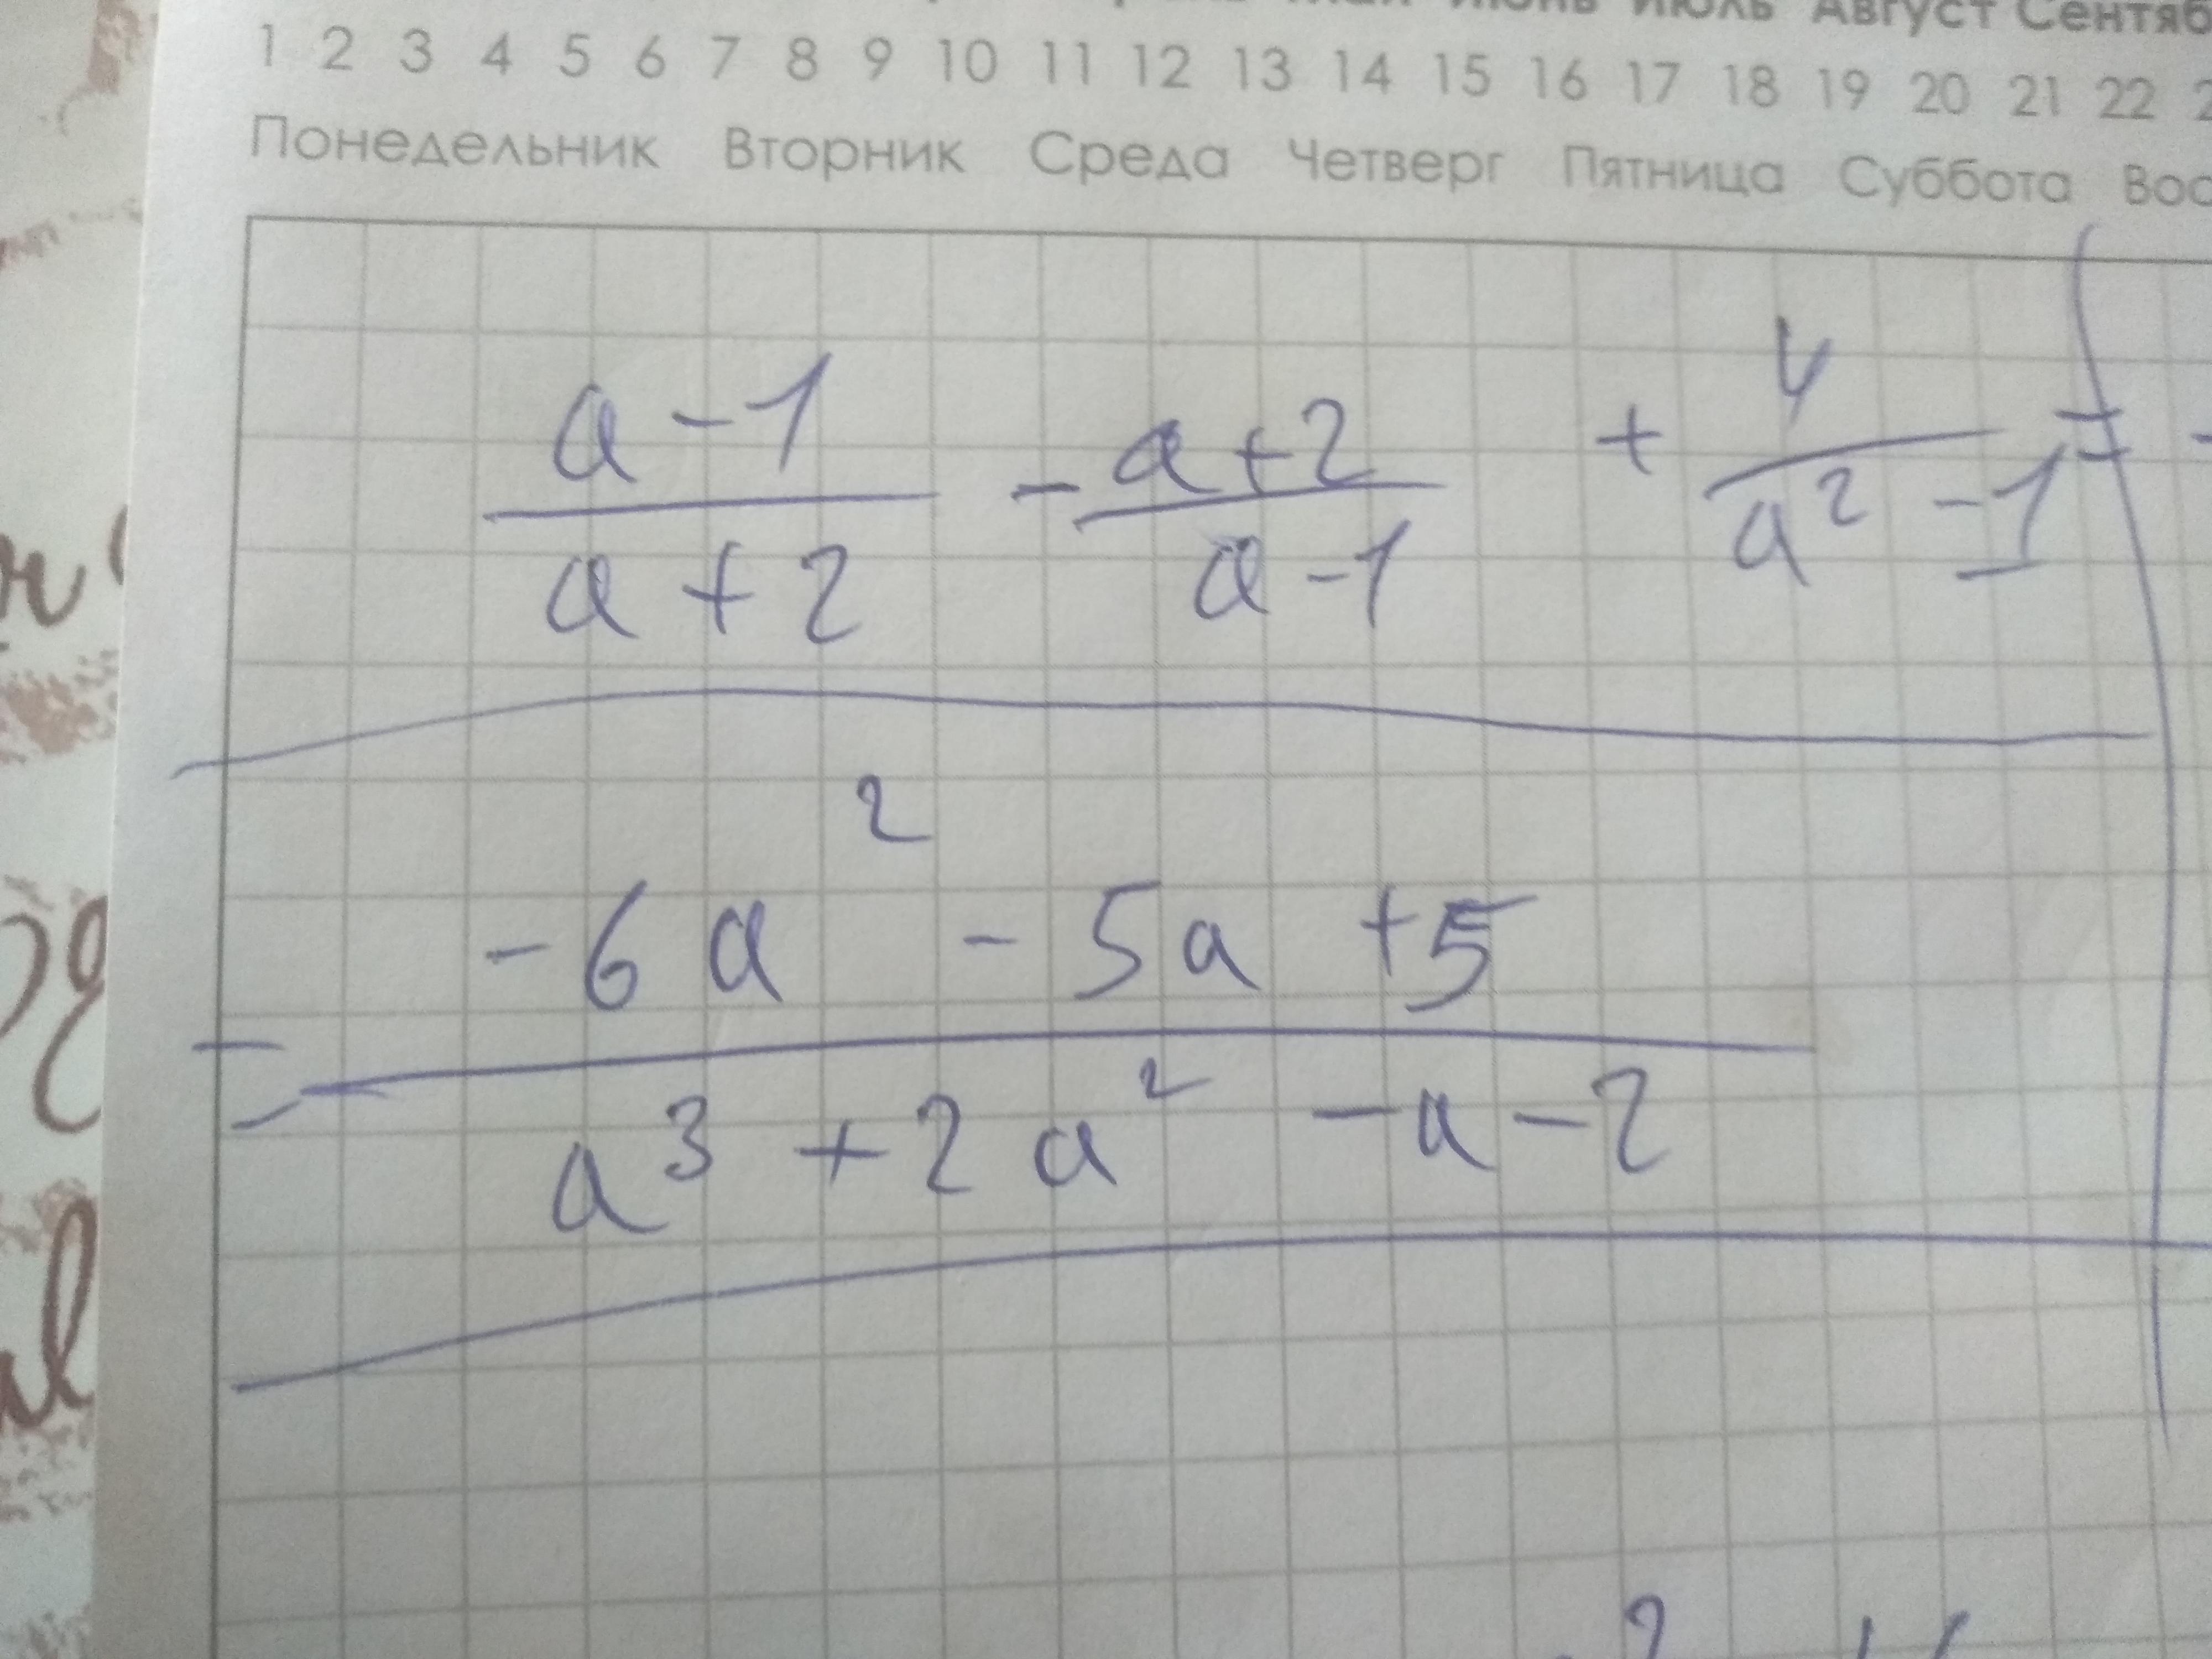 Июнь Июль Август
1 2 3 4 5 6 7 8 9 10 11 12 13 14 15 16 17 18 19 20 21 22
Понедельник Вторник Среда Четверг Пятница Суббота
a-1 / a+2 - a+2 / a-1 + 4 / a² -1 =
= -6a² - 5a +5 / a³ +2a² -a -2